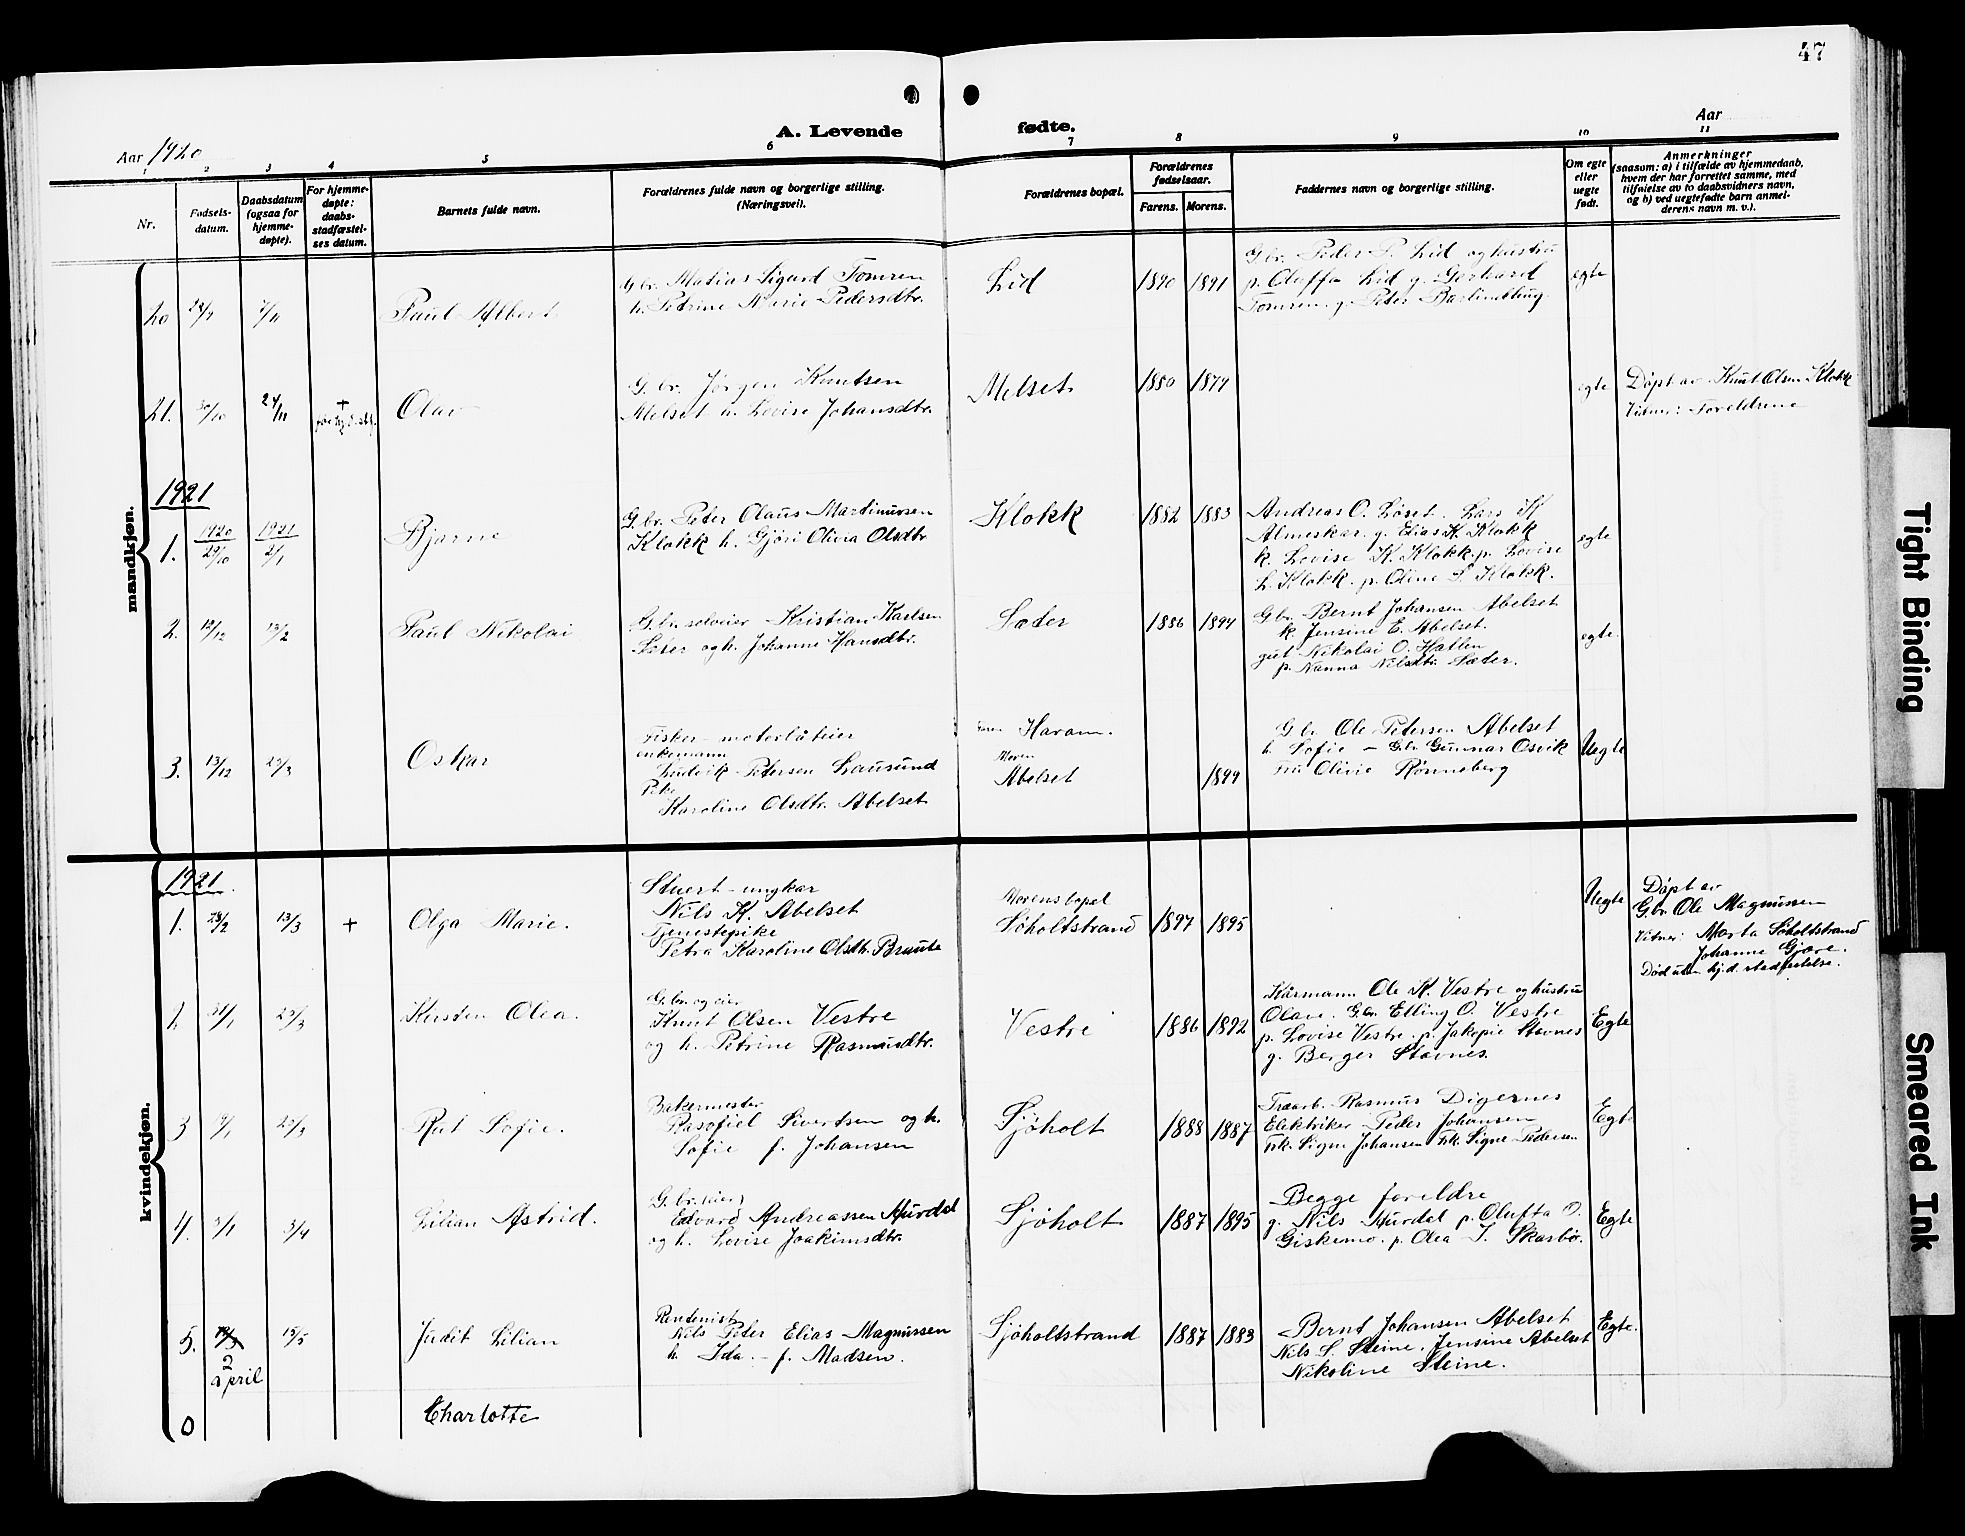 47
A. Levende fødte.
Aar 1920
Aar
1 2 3 4 5 6 7 8 9 10 11
Nr.
Fødsels-
datum.
Daabsdatum
(ogsaa for
hjemme-
døpte).
For hjemme-
døpte:
daabs-
stadfæstel-
ses datum.
Barnets fulde navn.
Forældrenes fulde navn og borgerlige stilling.
(Næringsvei).
Forældrenes bopæl.
Forældrenes
fødselsaar.
Farens. Morens.
Faddernes navn og borgerlige stilling.
Om egte
eller
uegte
født.
Anmerkninger
(saasom: a) i tilfælde av hjemmedaab,
hvem der har forrettet samme, med
tilføielse av to daabsvidners navn,
og b) ved uegtefødte barn anmel-
derens navn m. v.).
mandkjøn.
20 7/11 Paul Albert
Gbr. Matias Sigurd Tomren
h. Petrine Marie Pedersdtr.
Lid 1890 1891
Gbr. Peder P. Lid og hustru
p. Oluffa Lid g. Gerhard
Tomren. g. Peter Barlindhug.
egte
21. 30/10 +
Olav
G. br. Jørgen Knutsen
Melset h. Lovise Johansdtr.
Melset 1880 1877
egte
Døpt av Knut Olsen Klokk
Vitner: Foreldrene
1921
1. 1920 29/10 1921 2/1
Bjarne
G. br. Peter Olaus Martinussen
Klokk h. Gjøri Oliva Olsdtr.
Klokk 1882 1883
Andreas O. Løset. Lars K
Almeskar. g. Elias K. Klokk
k. Lovise K. Klokk. p. Lovise
L. Klokk. p. Oline P. Klokk.
egte
2. 12/12 13/2
Paul Nikolai
G. br. selveier Kristian Karlsen
Sæter og h. Johanne Hansdtr.
Sæder 1886 1894
Gbr. Bernt Johansen Abelset
k. Jensine E. Abelset.
gut Nikolai O. Hatlen
p. Nanna Nilsdtr. Sæder.
egte.
3. 13/12
Oskar
Fisker - motorbåteier
enkemann
Ludvik Petersen Lausund
Pike
Karoline Olsdtr. Abelset
Faren Haram.
Moren
Abelset 1899
Gbr. Ole Petersen Abelset
h. Sofie - Gbr. Gunnar Osvik
Fru Olivie Rønneberg
Uegte
kvindekjøn.
1921
1. 13/3 +
Olga Marie.
Stuert - ungkar
Nils K. Abelset
Tjenestepike
Petra Karoline Olsdtr. Braute
Morens bopel
Søholtstrand 1897 1895
Uegte
Døpt av
Gbr. Ole Magnussen
Vitner: Marta Søholtstrand
Johanne Gjære.
Død uten hj.d. stadfestelse.
1. 31/1
Kirsten Olea.
G. br. og eier
Knut Olsen Vestre
og h. Petrine Rasmusdtr.
Vestre 1886 1892
Kårmann Ole K. Vestre og hustru
Olave. Gbr. Elling O. Vestre
p. Lovise Vestre. p. Jakopie Stavnes
g. Berger Stavnes.
Egte
3
Rut Sofie.
Bakermester
Rasofiel Sivertsen og h.
Sofie f. Johansen
Sjøholt 1888 1887
Træarb. Rasmus Digernes
Elektriker Peder Johansen
Frk. Signe Johansen Frk. Signe Pedersen
Egte
4. 3/1 3/4
Lilian Astrid.
G. br. (eier)
Edvard Andreassen Hurdal
og h. Lovise Joakimsdtr.
Sjøholt 1887 1895
Begge foreldre
g. Nils Hurdal p. Olufta O.
Giskemo. p. Olea I. Skarbø.
Egte
5. 2 april 15/5
Judit Lilian
Rentenist
Nils Peter Elias Magnussen
h. Ida. - f. Madsen.
Sjøholtstrand 1887 1883
Bernt Johansen Abelset
Nils S. Steine. Jensine Abelset
Nikoline Steine.
Egte.
0 Charlotte
Tight Binding
Smeared Ink